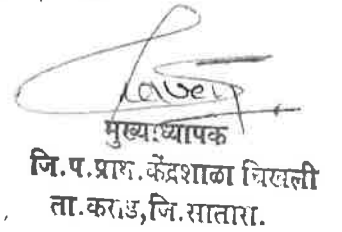 मुख्याध्यापक
जि.प.प्राथ.केंद्रशाळा चिखली
ता.कराड,जि.सातारा.